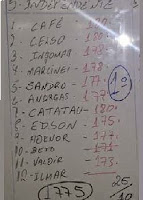 5- INDEPENDENTE
1- CAFÉ 180-
2- CELSO - 180-
3- INDOMAR 178-
4- MARCINEI - 178-
5- SANDRO - 177- 1º
6- 177-
7- CATATAU - 180-
8- EDSON - 175-
9- ADENOR - 177-
10- BETO - 171-
11- VALDIR - 173-
12- ILMAR
1775 25/10